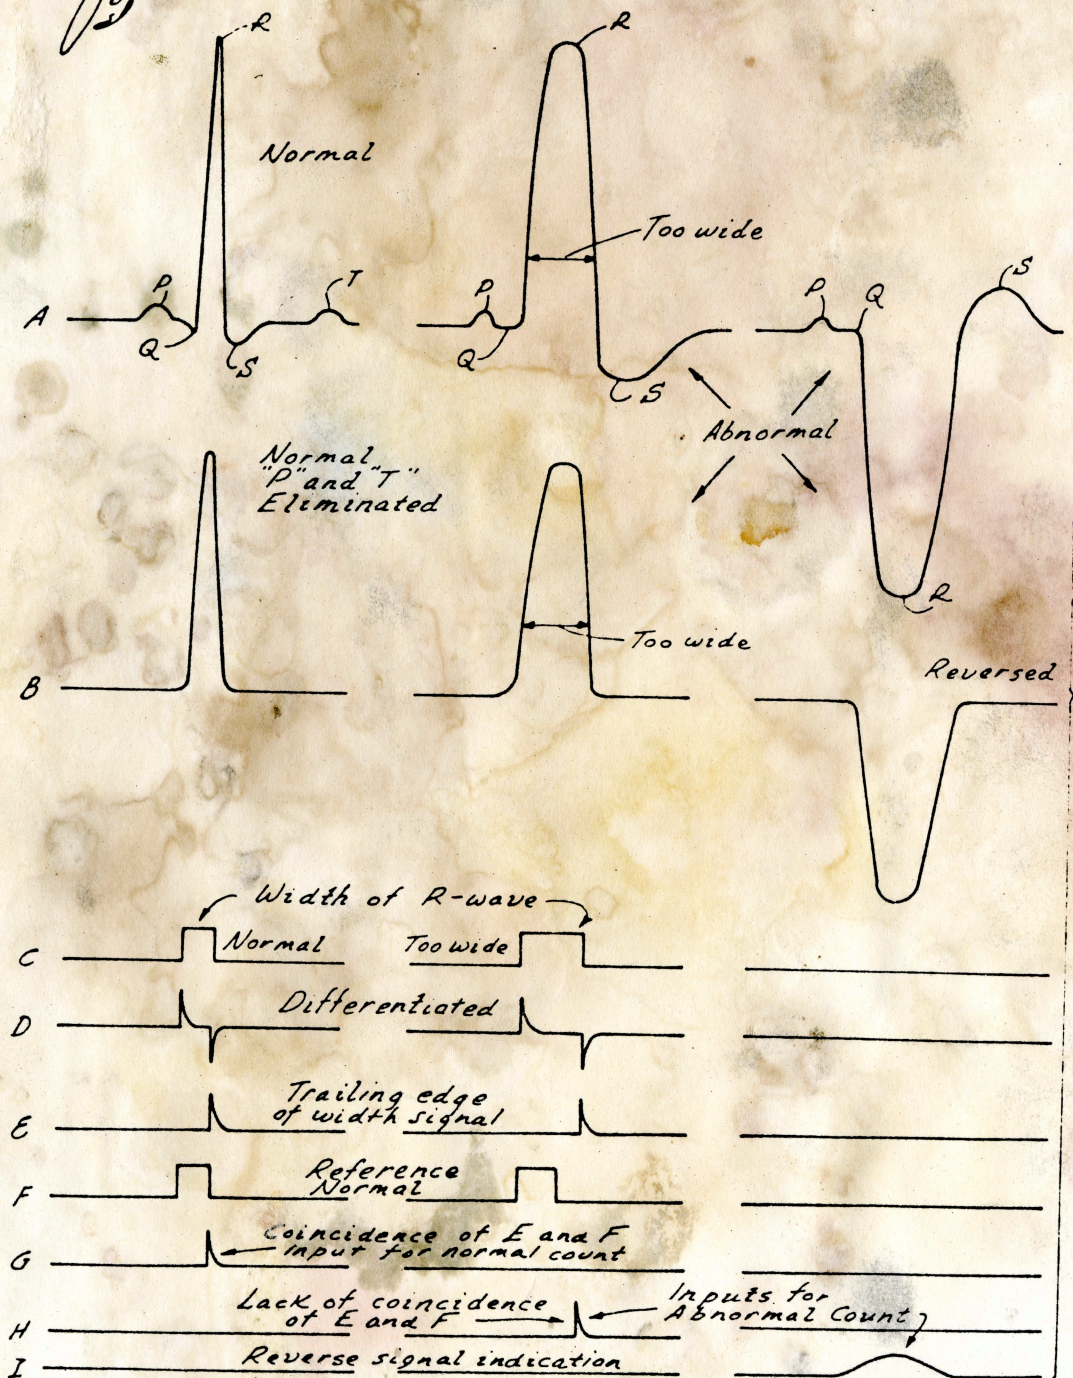 R
R
Normal
Too wide
P
T
P
P
Q
S
A
Q
S
Q
S
Abnormal
Normal
"P" and "T"
Eliminated
R
Too wide
Reversed
B
Width of R-wave
C
Normal
Too wide
D
Differentiated
Trailing edge
of width signal
E
Reference
Normal
F
Coincidence of E and F
input for normal count
G
Lack of coincidence
of E and F
Inputs for
Abnormal Count
H
I
Reverse signal indication